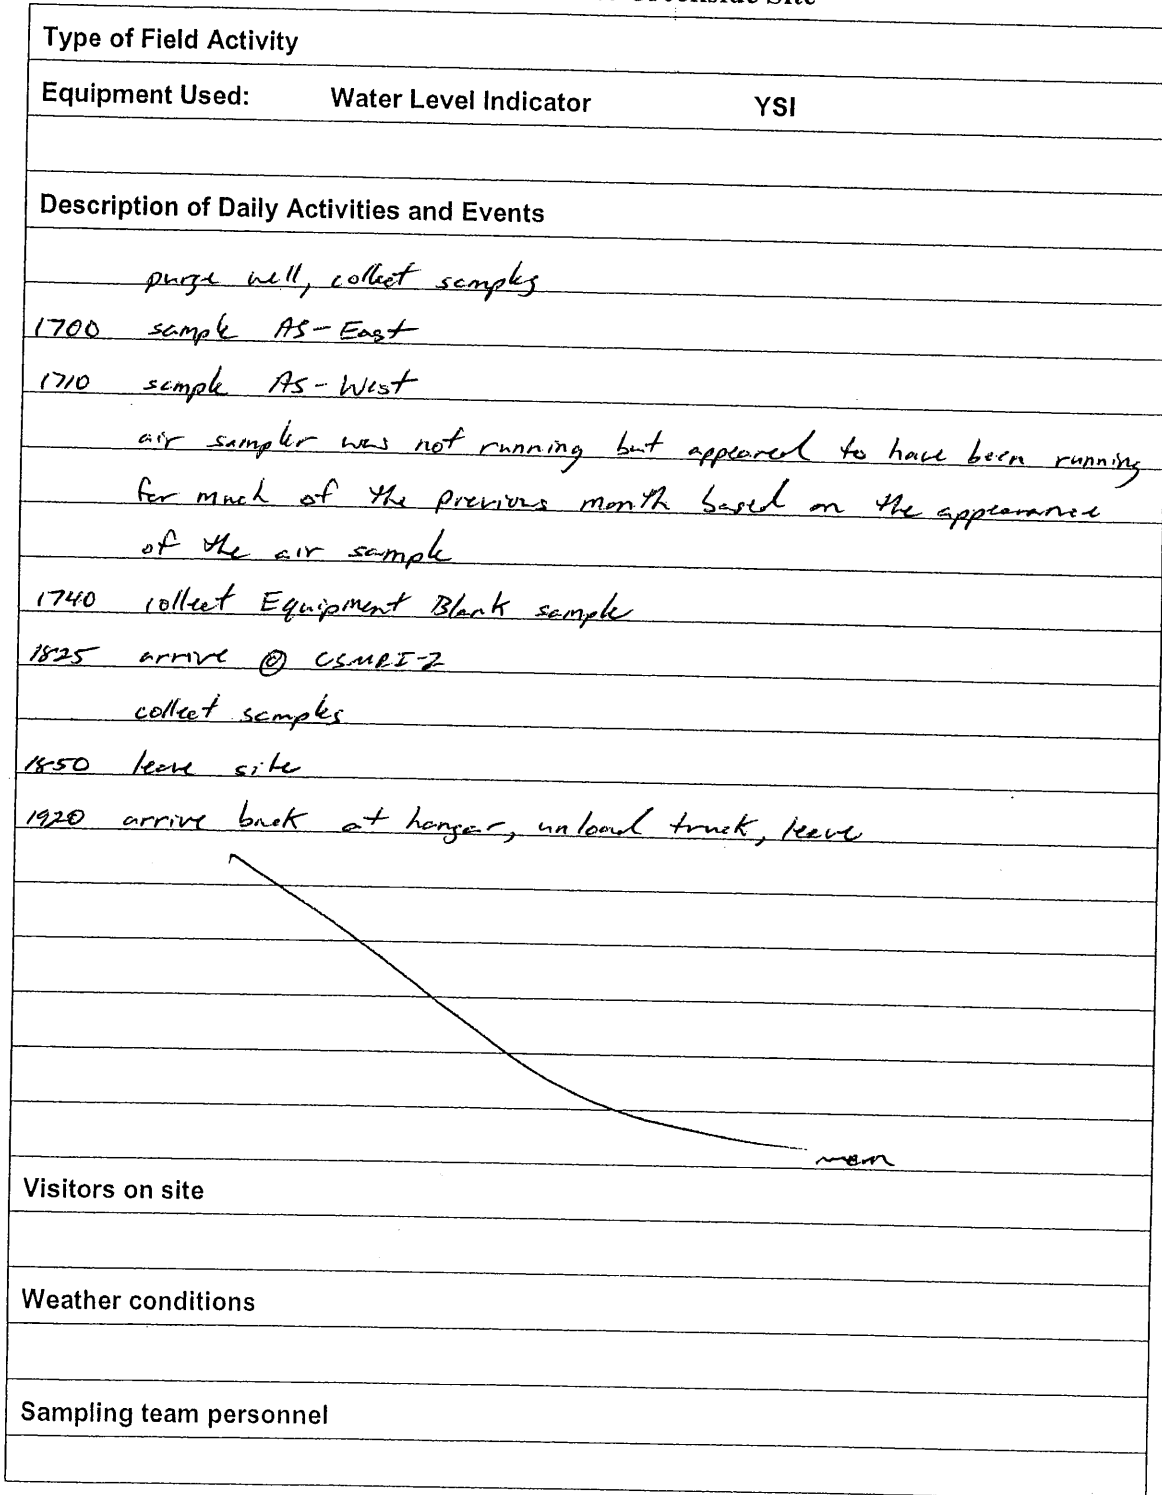 Creekside Site
Type of Field Activity
Equipment Used: Water Level Indicator YSI
Description of Daily Activities and Events
purge well, collect samples
1700 sample AS-East
1710 sample AS-West
air sampler was not running but appeared to have been running
for much of the previous month based on the appearance
of the air sample
1740 collect Equipment Blank sample
1825 arrive @ CSMRI-2
collect samples
1850 leave site
1920 arrive back at hangar, unload truck, leave
Visitors on site
Weather conditions
Sampling team personnel